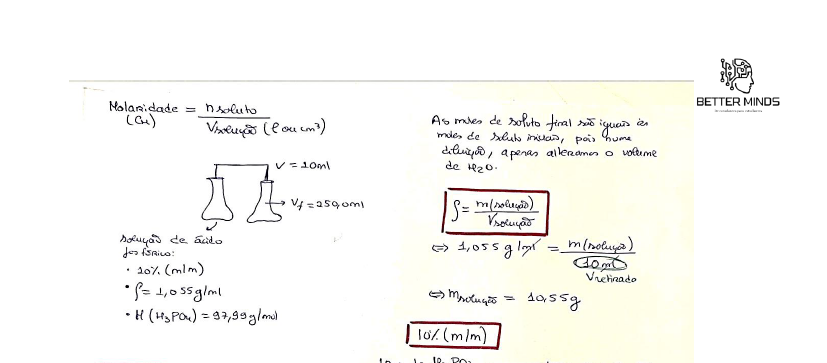 Molaridade = nsoluto
(Cn) Vsolução (l ou cm³)
V = 10ml
Vf = 250,0ml
solução de ácido
fosfórico:
• 10% (m/m)
• ρ = 1,055g/ml
• M (H3PO4) = 97,99g/mol
As moles de soluto final são iguais às
moles de soluto iniciais, pois numa
diluição, apenas alteramos o volume
de H2O.
ρ = m(solução)
Vsolução
⇔ 1,055 g/ml = m(solução)
10ml
Vretirado
⇔ msolução = 10,55g
10% (m/m)
BETTER MINDS